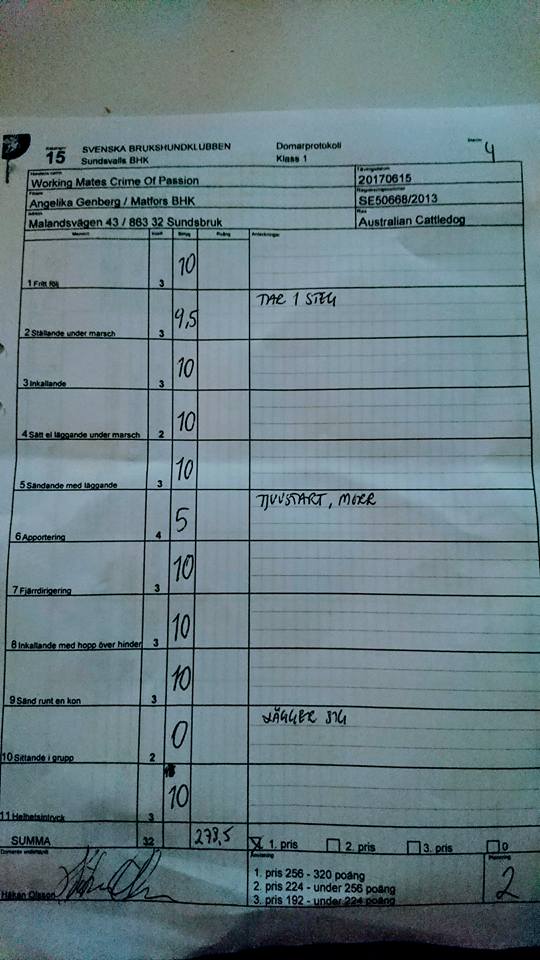 15 SVENSKA BRUKSHUNDKLUBBEN Domarprotokoll
Sundsvalls BHK Klass 1 4
Working Mates Crime Of Passion 20170615
Angelika Genberg / Matfors BHK SE50668/2013
Malandsvägen 43 / 863 32 Sundsbruk Australian Cattledog
Moment Koeff Betyg Poäng Anteckningar
1 Fritt följ 3 10
2 Ställande under marsch 3 9,5 TAR 1 STEG
3 Inkallande 3 10
4 Sätt el läggande under marsch 2 10
5 Sändande med läggande 3 10
6 Apportering 4 5 TJUVSTART, MORR
7 Fjärrdirigering 3 10
8 Inkallande med hopp över hinder 3 10
9 Sänd runt en kon 3 10
10 Sittande i grupp 2 0 LÄGGER SIG
11 Helhetsintryck 3 10
SUMMA 32 278,5 X 1. pris 2. pris 3. pris 0
Domarens underskrift Placering
Håkan Olsson 1. pris 256 - 320 poäng 2
2. pris 224 - under 256 poäng
3. pris 192 - under 224 poäng